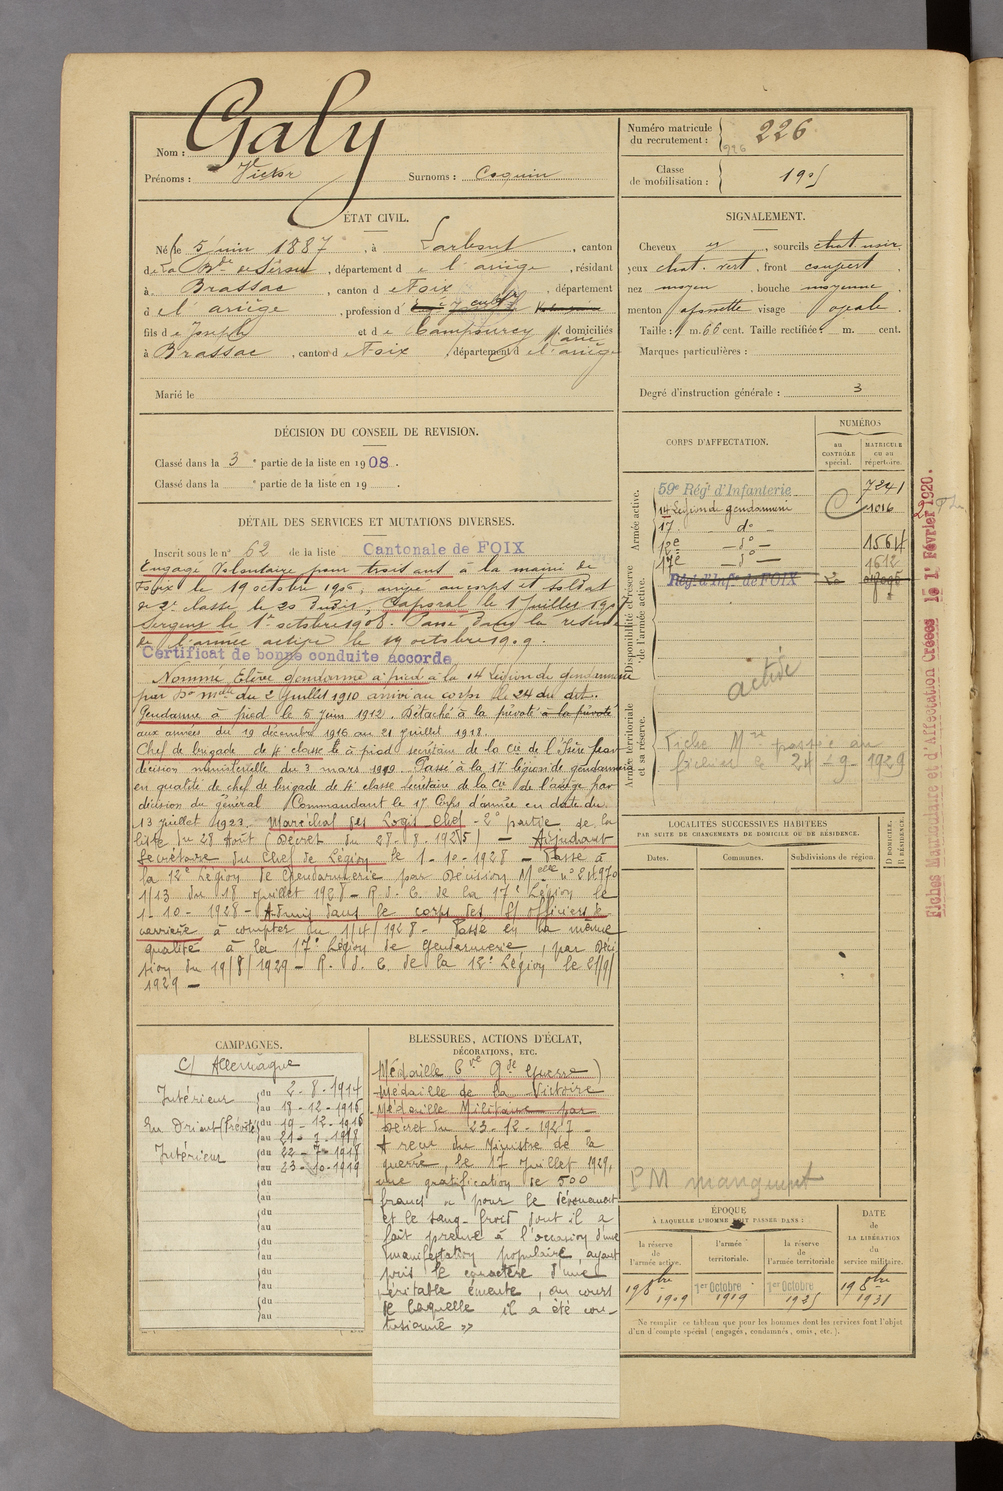 Nom : Galy
Prénoms : Victor Surnoms : Coquin
Numéro matricule du recrutement : 226
926
Classe de mobilisation : 1905
ÉTAT CIVIL.
Né le 5 juin 1887, à Larbont, canton
de La Bde de Sérou, département de l'ariège, résidant
à Brassac, canton de Foix, département
de l'ariège, profession d
fils de Joseph et de Campourcy Marie, domiciliés
à Brassac, canton d Foix, département de l'ariège
Marié le
SIGNALEMENT.
Cheveux et, sourcils chat. noir,
yeux chat. vert, front couvert
nez moyen, bouche moyenne,
menton à fossette visage ovale.
Taille : 1 m. 66 cent. Taille rectifiée : m. cent.
Marques particulières :
Degré d'instruction générale : 3
DÉCISION DU CONSEIL DE REVISION.
Classé dans la 3e partie de la liste en 1908.
Classé dans la e partie de la liste en 19 .
DÉTAIL DES SERVICES ET MUTATIONS DIVERSES.
Inscrit sous le n° 62 de la liste Cantonale de FOIX
Engagé Volontaire pour trois ans à la mairie de
Foix le 19 octobre 1906, arrivé au corps et soldat
de 2e classe le 20 dudit, Caporal le 1 Juillet 1907
Sergent le 1er octobre 1908. Passé dans la réserve
de l'armée active le 19 octobre 1909.
Certificat de bonne conduite accordé
Nommé Elève gendarme à pied à la 14 Légion de gendarmerie
par Don Melle du 2 Juillet 1910 arrivé au corps le 24 du dit.
Gendarme à pied le 5 Juin 1912. Détaché à la prévoté à la prévoté
aux armées du 19 décembre 1916 au 21 juillet 1918.
Chef de brigade de 4e classe le à pied secrétaire de la Cie de l'Isère par
décision ministérielle du 3 mars 1920. Passé à la 17e légion de gendarmerie
en qualité de chef de brigade de 4e classe secrétaire de la Cie de l'ariège par
décision du général Commandant le 17 Corps d'armée en date du
13 juillet 1923. Maréchal des Logis Chef - 2e partie de la
liste du 28 Août (Décret du 28.8.1925) - Adjudant
Secrétaire du Chef de Légion le 1-10-1928 - Passé à
la 12e Légion de Gendarmerie par Décision Melle n° 24970
1/13 du 18 Juillet 1928 - R.d.C. de la 17e Légion le
1-10-1928 - Admis dans le corps des S/ officiers de
carrière à compter du 1/4/1928 - Passé en la même
qualité à la 17e Légion de Gendarmerie, par Déci
sion du 19/8/1929 - R.d.C. de la 12e Légion le 21/9/
1929 -
CORPS D'AFFECTATION.
NUMÉROS
au CONTRÔLE spécial.
MATRICULE ou au répertoire.
Armée active.
59e Régt d'Infanterie 7241
14 Légion de gendarmerie 1016
17. do -
12e - do - 1564
17e - do - 1612
Disponibilité et réserve de l'armée active.
Régt d'Infie de FOIX
active
Armée territoriale et sa réserve.
Fiche Mre passée au
fichier le 24-9-1929
Fiches Matriculaire et d'Affectation Créées le 1er Février 1920.
LOCALITÉS SUCCESSIVES HABITÉES
PAR SUITE DE CHANGEMENTS DE DOMICILE OU DE RÉSIDENCE.
Dates. Communes. Subdivisions de région. D DOMICILE. R RÉSIDENCE.
PM manquant
CAMPAGNES.
C/ Allemagne
Intérieur du 2-8-1914
au 18-12-1916
En Orient (Prévôté) du 19-12-1916
au 21-7-1918
Intérieur du 22-7-1918
au 23-10-1919
du
au
du
au
du
au
du
au
du
au
BLESSURES, ACTIONS D'ÉCLAT,
DÉCORATIONS, ETC.
Médaille Cve Gde Guerre)
Médaille de la Victoire
Médaille Militaire par
Décret du 23-12-1927 -
A reçu du Ministre de la
guerre, le 17 Juillet 1929,
une gratification de 500
francs « pour le dévouement
et le sang-froid dont il a
fait preuve à l'occasion d'une
manifestation populaire ayant
pris le caractère d'une
véritable émeute, au cours
de laquelle il a été con-
tusionné »
ÉPOQUE
À LAQUELLE L'HOMME DOIT PASSER DANS :
la réserve de l'armée active.
l'armée territoriale.
la réserve de l'armée territoriale
DATE de LA LIBÉRATION du service militaire.
19 8bre 1909
1er Octobre 1919
1er Octobre 1925
19 8bre 1931
Ne remplir ce tableau que pour les hommes dont les services font l'objet
d'un décompte spécial (engagés, condamnés, omis, etc.).